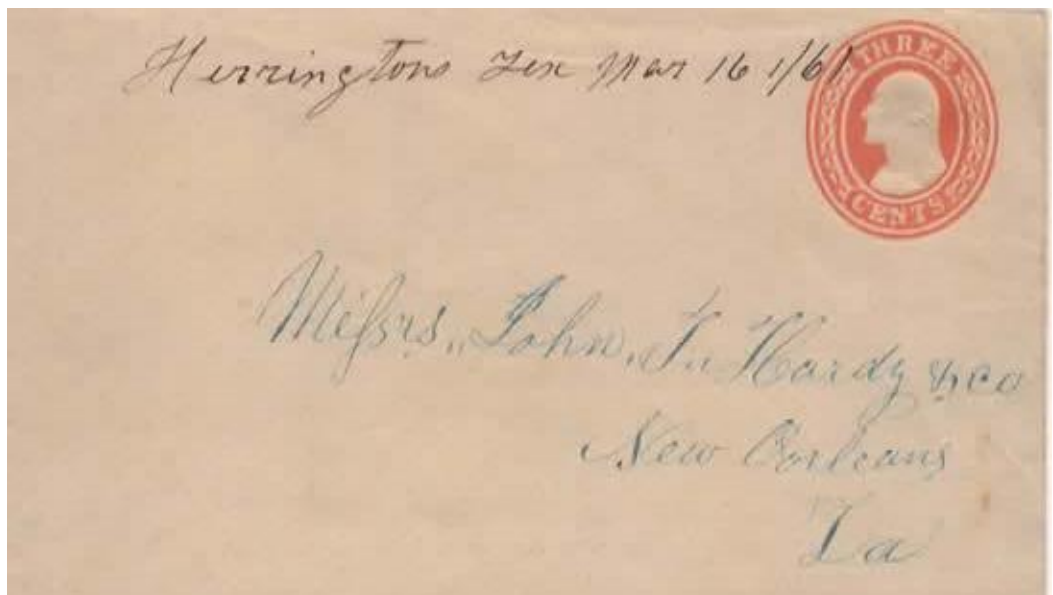 Herringtons Tex Mar 16 1/61
THREE
CENTS
Messrs,, John, F. Hardy & co
New Orleans
La